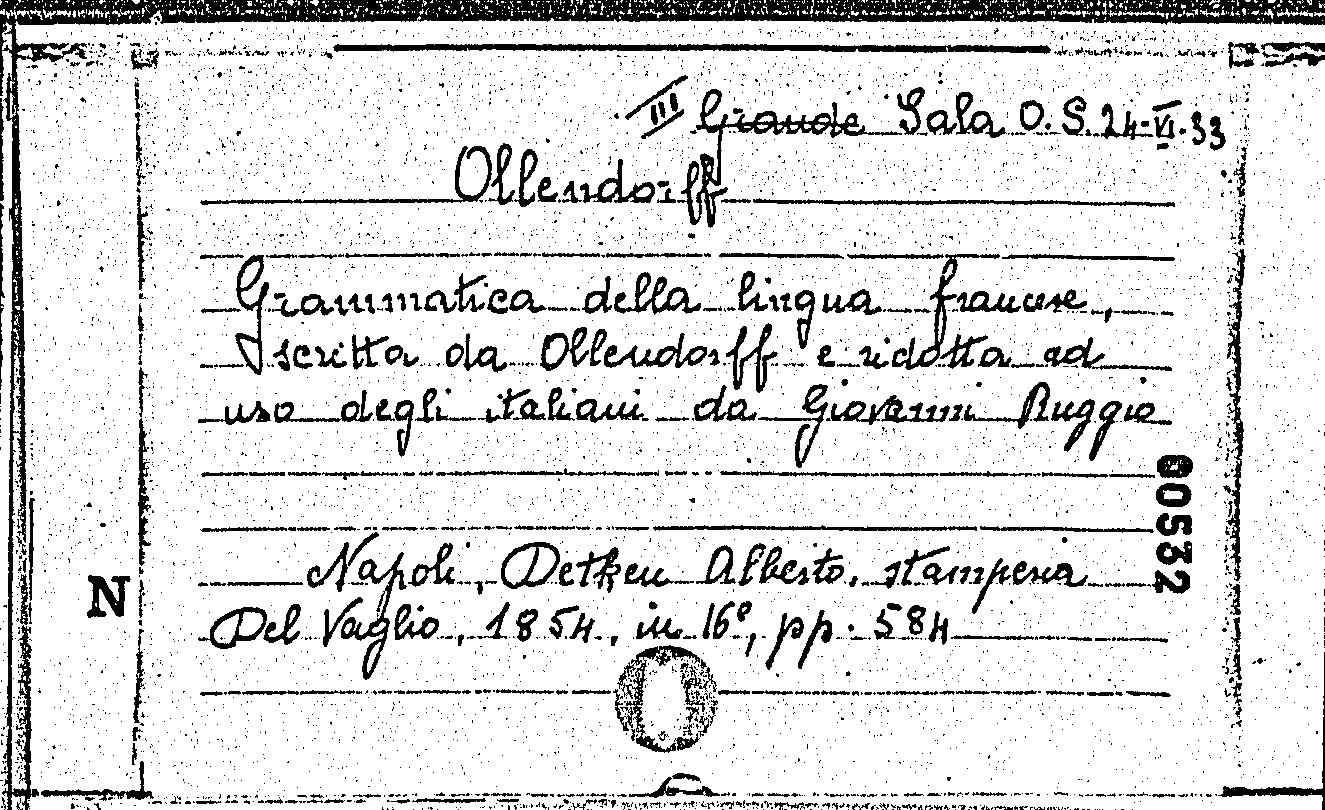 III Grande Sala O. S. 24-VI-33
Ollendorff
Grammatica della lingua francese,
scritta da Ollendorff e ridotta ad
uso degli italiani da Giovanni Ruggio
00532
Napoli, Detken Alberto, stamperia
N
Del Vaglio, 1854, in 16º, pp. 584